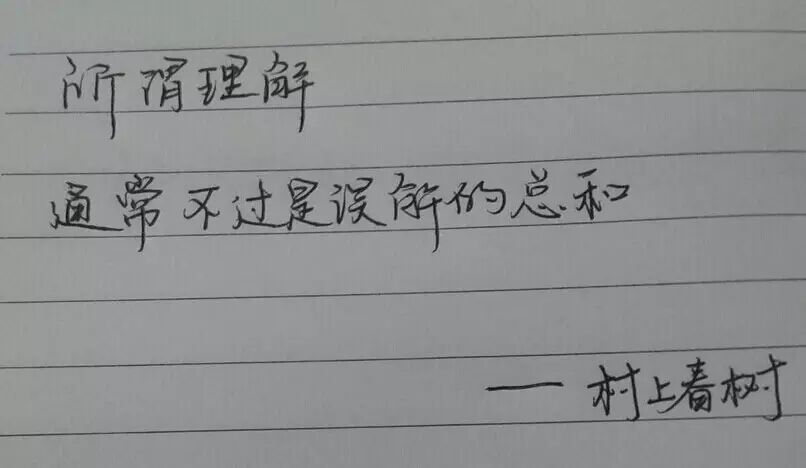 所谓理解
通常不过是误解的总和
——村上春树